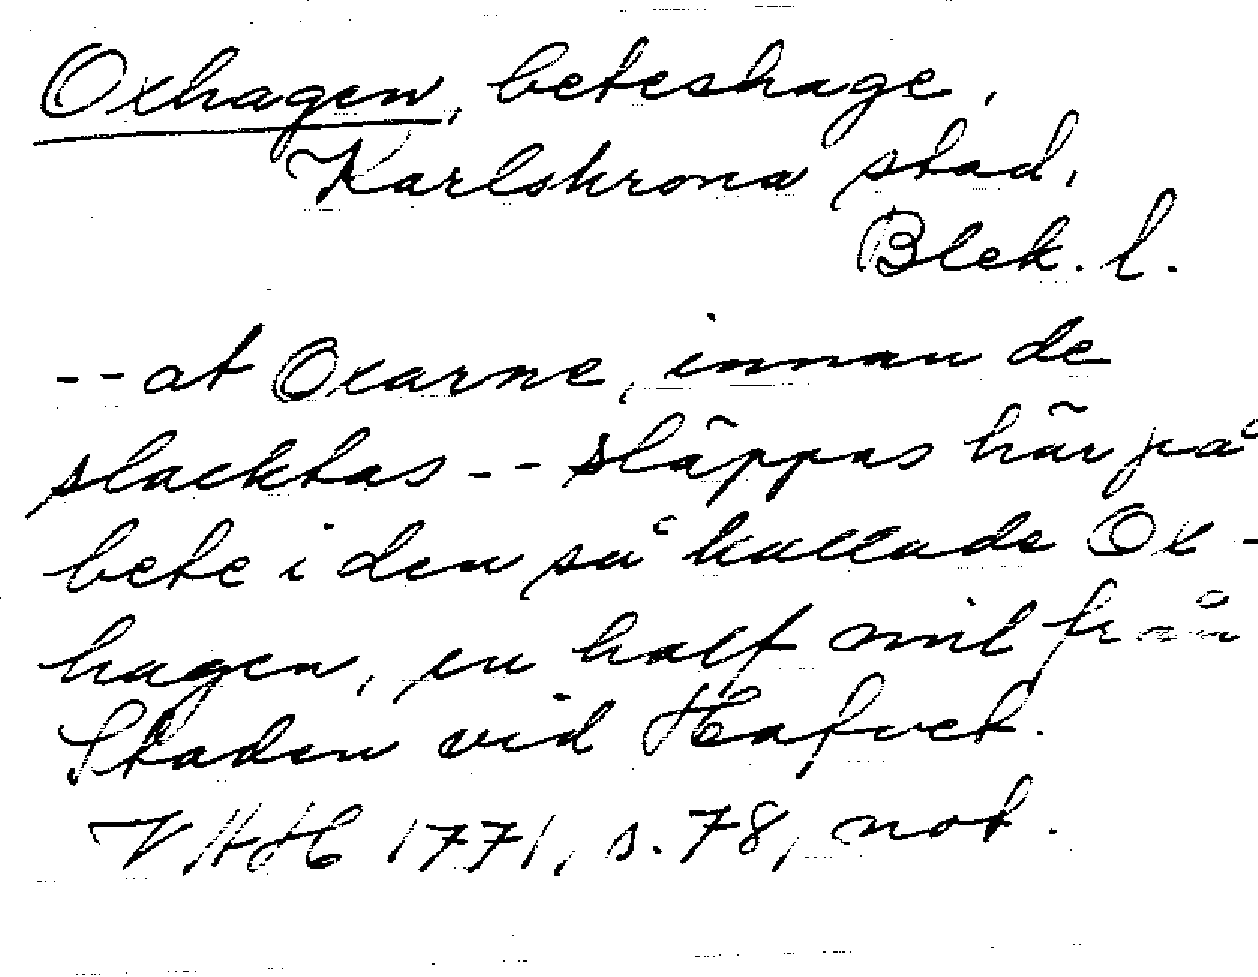 Oxhagen, beteshage,
Karlskrona stad,
Blek. l.
-- at Oxarne, innan de
slacktas -- släppas här på
bete i den så kallade Ox-
hagen, en half mil från
Staden vid Hafvet.
VAH 1771, s. 78, not.